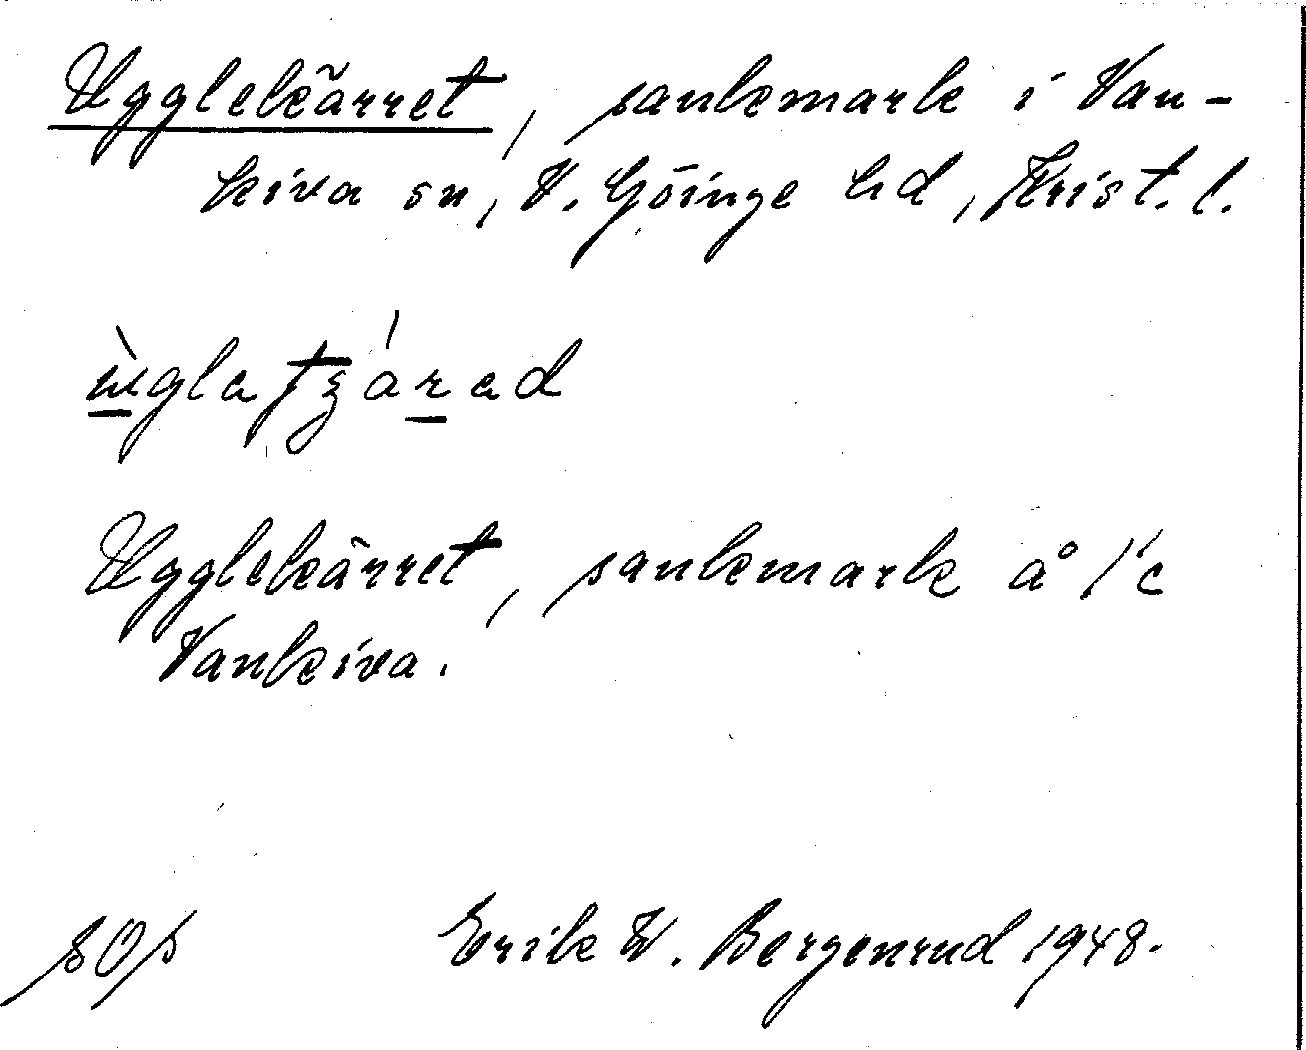 Ugglekärret, sankmark i Van-
kiva sn, V. Göinge hd, Krist. l.
Ugglekärret, sankmark å 1/c
Vankiva.
Erik W. Bergenrud 1948.